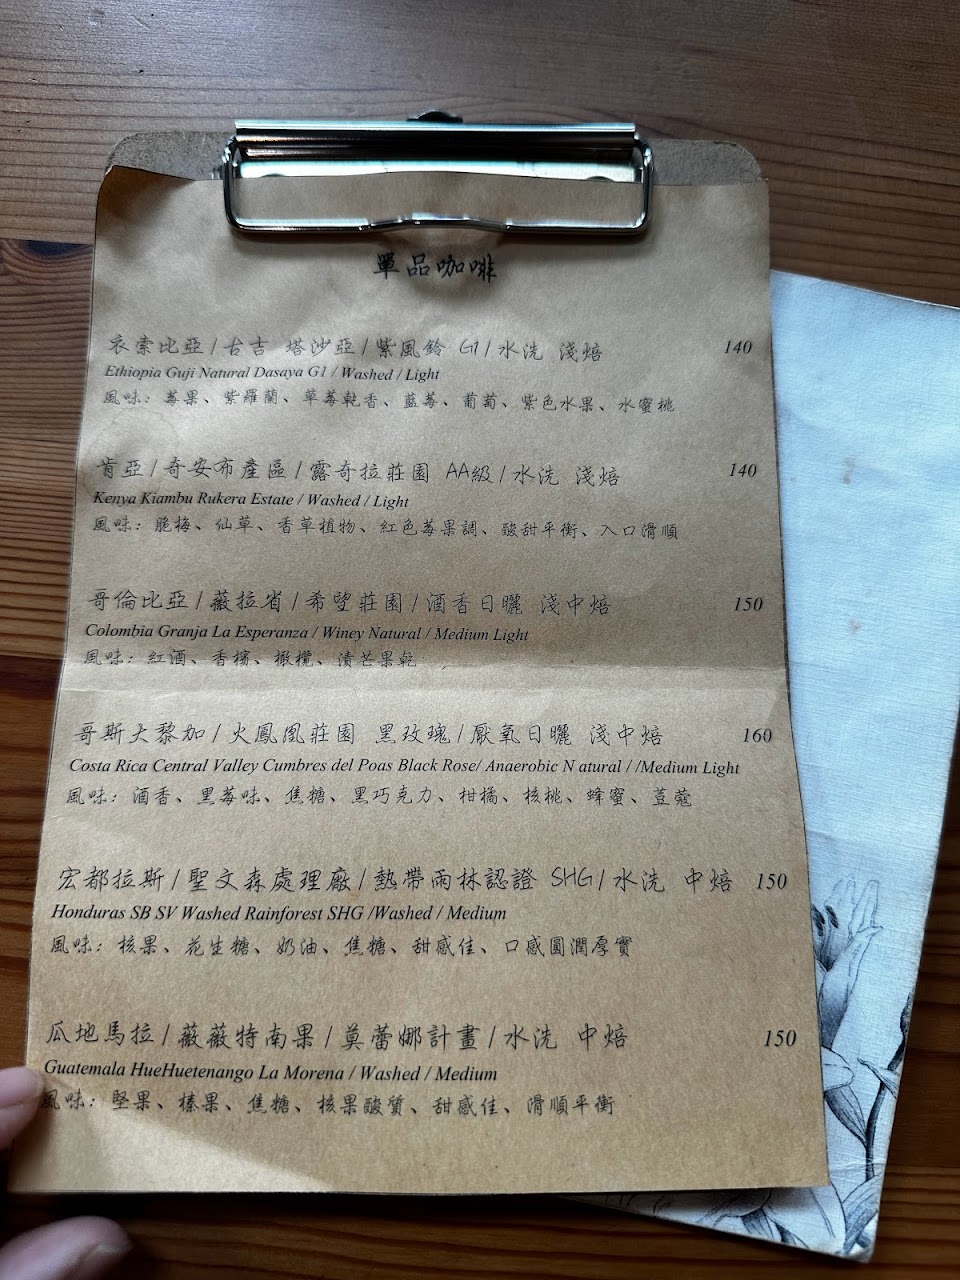 單品咖啡
衣索比亞/古吉 塔沙亞/紫風鈴 G1/水洗 淺焙 140
Ethiopia Guji Natural Dasaya G1 / Washed / Light
風味: 莓果、紫羅蘭、草莓乾香、藍莓、葡萄、紫色水果、水蜜桃
肯亞/奇安布產區/露奇拉莊園 AA級/水洗 淺焙 140
Kenya Kiambu Rukera Estate / Washed / Light
風味: 脆梅、仙草、香草植物、紅色莓果調、酸甜平衡、入口滑順
哥倫比亞/薇拉省/希望莊園/酒香日曬 淺中焙 150
Colombia Granja La Esperanza / Winey Natural / Medium Light
風味: 紅酒、香檳、橄欖、漬芒果乾
哥斯大黎加/火鳳凰莊園 黑玫瑰/厭氧日曬 淺中焙 160
Costa Rica Central Valley Cumbres del Poas Black Rose/ Anaerobic N atural / /Medium Light
風味: 酒香、黑莓味、焦糖、黑巧克力、柑橘、核桃、蜂蜜、荳蔻
宏都拉斯/聖文森處理廠/熱帶雨林認證 SHG/水洗 中焙 150
Honduras SB SV Washed Rainforest SHG /Washed / Medium
風味: 核果、花生糖、奶油、焦糖、甜感佳、口感圓潤厚實
瓜地馬拉/薇薇特南果/莫蕾娜計畫/水洗 中焙 150
Guatemala HueHuetenango La Morena / Washed / Medium
風味: 堅果、榛果、焦糖、核果酸質、甜感佳、滑順平衡